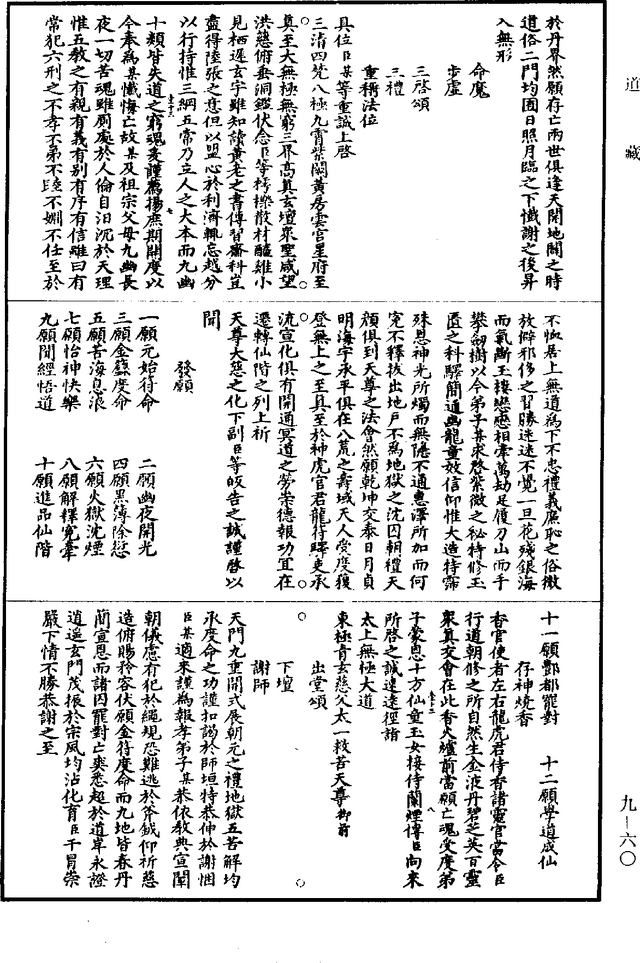 道藏
於丹界然願存亡兩世俱逢天開地闢之時
道俗二門均囿日照月臨之下懺謝之後昇
入無形
命魔
步虛
三啓頌
三禮
重稱法位
具位臣某等重誠上啓
三清四梵八極九霄紫闕黃房雲宮星府至
真至大無極無窮三界高真玄壇衆聖咸望
洪慈俯垂洞鑑伏念臣等樗櫟散材醯雞小
見栖遲玄宇雖知讀黃老之書傳習齋科豈
盡得陸張之意但以盟心於利濟輒忘越分
以行持惟三綱五常乃立人之大本而九幽
十類皆失道之窮魂爰謹薦揚庶期開度以
今奉為某懺悔亡故某及祖宗父母九幽長
夜一切苦魂雖厠處於人倫自汨沉於天理
惟五教之有親有義有別有序有信雖曰有
常犯六刑之不孝不弟不睦不婣不任至於
不恤居上無道為下不忠禮義廉恥之俗微
放僻邪侈之習勝迷迷不覺一旦花殘銀海
而氣斷玉樓戀戀相牽萬劫足履刀山而手
攀劒樹以今弟子某求啓紫微之祕特修玉
匱之科驛簡通幽龍童效信仰惟大造特霈
殊恩神光所燭而無隱不通惠澤所加而何
寃不釋拔出地戶不為地獄之沈囚朝禮天
顏俱到天尊之法會然願乾坤交泰日月貞
明海宇承平俱在八荒之壽域天人受度獲
登無上之至真至於神虎官君龍符驛吏承
流宣化俱有開通冥道之勞崇德報功宜在
遷轉仙階之列上祈
天尊大慈之化下副臣等皈告之誠謹啓以
聞
發願
一願元始符命　二願幽夜開光
三願金籙度命　四願黑簿除愆
五願苦海息浪　六願火獄沈煙
七願怡神快樂　八願解釋寃牽
九願聞經悟道　十願進品仙階
十一願酆都罷對　十二願學道成仙
存神燒香
香官使者左右龍虎君侍香諸靈官當令臣
行道朝修之所自然生金液丹碧芝英百靈
衆真交會在此香火爐前當願亡魂受度弟
子蒙恩十方仙童玉女接侍蘭煙傳臣向來
所啓之誠速達徑諸
太上無極大道
東極青玄慈父太一救苦天尊御前
出堂頌
下壇
謝師
天門九重開式展朝元之禮地獄五苦解均
承度命之功謹扣謁於師垣特恭伸於謝悃
臣某適來謹為報孝弟子某恭依教典宣闡
朝儀慮有犯於繩規恐難逃於斧鉞仰祈慈
造俯賜矜容伏願金符度命而九地皆春丹
簡宣恩而諸囚罷對亡爽悉超於道岸永證
逍遙玄門茂振於宗風均沾化育臣干冒崇
嚴下情不勝恭謝之至
九—六〇